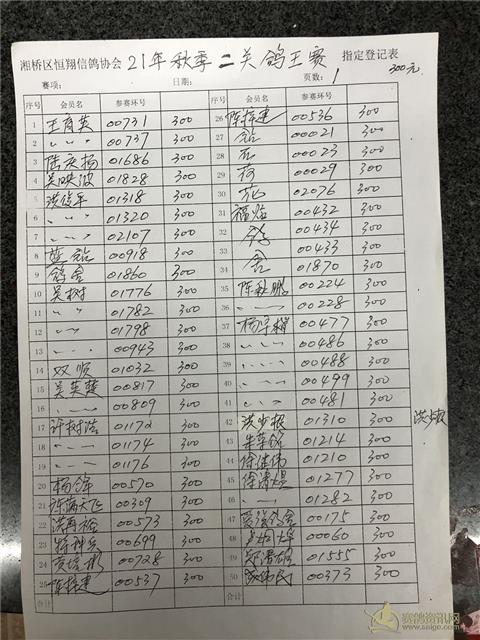 湘桥区恒翔信鸽协会 21年秋季二关鸽王赛 指定登记表
赛项: 日期: 页数: 1 300元
序号 会员名 参赛环号 序号 会员名 参赛环号
1 王育英 00731 300 26 陈择建 00536 300
2 〃 00737 300 27 00021 300
3 陆庆扬 01686 300 28 00023 300
4 吴映波 01828 300 29 荷 00029 300
5 洪信年 01318 300 30 花 02076 300
6 〃 01320 300 31 福灿 00432 300
7 〃 02107 300 32 鸽 00434 300
8 蓝 00918 300 33 舍 00433 300
9 鸽舍 01860 300 34 01870 300
10 吴树 01776 300 35 陈秋鹏 00224 300
11 〃 01782 300 36 〃 00228 300
12 〃 01798 300 37 00477 300
13 〃 00943 300 38 〃 00486 300
14 双顺 01032 300 39 〃 00488 300
15 吴英楚 00817 300 40 〃 00499 300
16 〃 00809 300 41 〃 00481 300
17 许树浩 01172 300 42 洪少报 01310 300
18 〃 01174 300 43 01214 300
19 〃 01176 300 44 徐健伟 01210 300
20 杨 00570 300 45 徐 01277 300
21 陈满天飞 00309 300 46 〃 01282 300
22 00573 300 47 00175 300
23 特种兵 00699 300 48 00060 300
24 00728 300 49 01555 300
25 陈择建 00537 300 50 00373 300
合计 合计
赛鸽资讯网